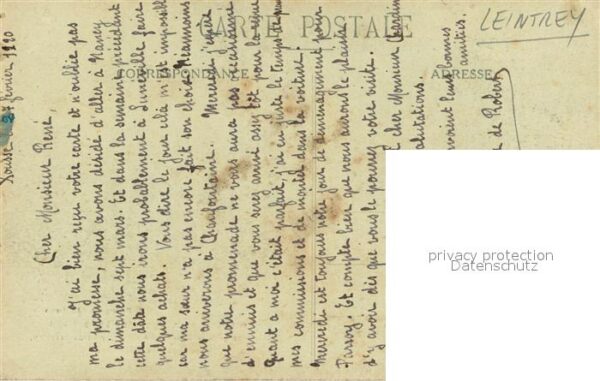 CARTE POSTALE
CORRESPONDANCE
ADRESSE
LEINTREY
Xousse 27 février 1920
Cher Monsieur René,
J'ai bien reçu votre carte et n'oublie pas
ma promesse, nous avons décidé d'aller à Nancy
le dimanche sept mars. Et dans la semaine précédant
cette date nous irons probablement à Lunéville faire
quelques achats. Vous dire le jour cela m'est impossible
car ma sœur n'a pas encore fait son choix. Néanmoins
nous arriverons à Chanfontaine. Mercredi j'espère
que notre promenade ne vous aura pas occasionné
d'ennuis et que vous serez arrivé assez tôt pour la
quant a moi c'était parfait, j'ai eu juste le temps
mes commissions et de monter dans la voiture.
Mercredi est toujours notre jour de déménagement pour
Parroy. Et compte bien que nous aurons le plaisir
d'y avoir dès que vous le pourrez votre visite.
cher Monsieur
salutations.
envoient leurs bonnes
amitiés.
de Robert
privacy protection
Datenschutz